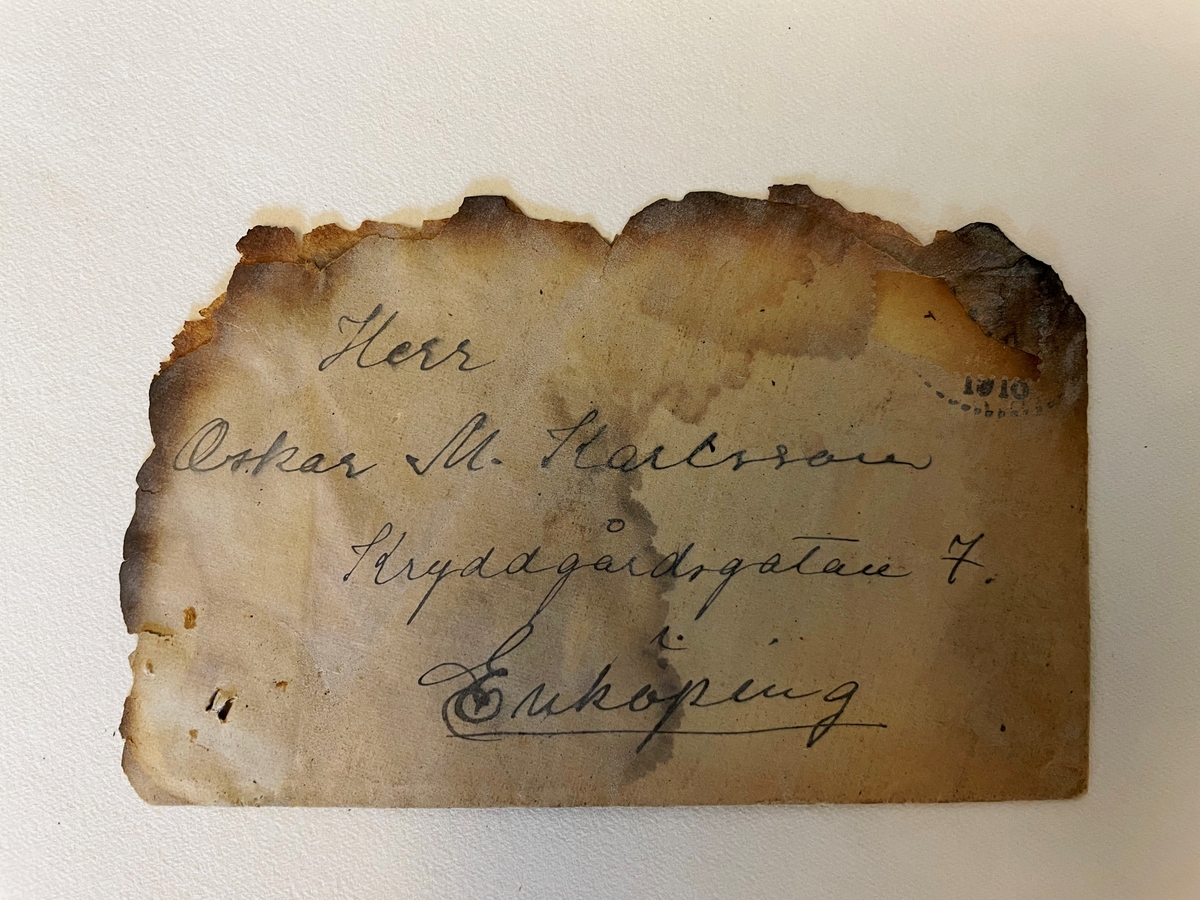 1910
Herr
Oskar M. Karlsson
Kryddgårdsgatan 7.
i.
Enköping